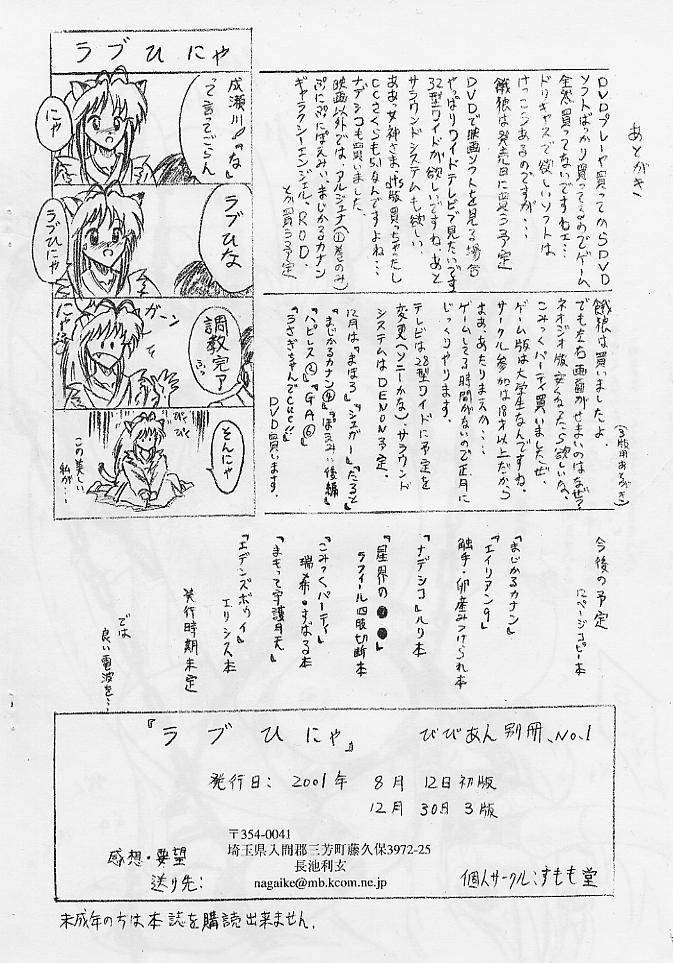 ラブひにゃ
成瀬川♪「な」
って言ってごらん
にゃ
ラブひな
ラブひにゃ
調教完了
ふっ
ガーン
にゃ
そんにゃ
この美しい
私が…
あとがき
DVDプレーヤ買ってからDVD
ソフトばっかり買ってるのでゲーム
全然買ってないですねェ…
ドリキャスで欲しいソフトは
けっこうあるのですが…
餓狼は発売日に買う予定
DVDで映画ソフトを見る場合
やっぱりワイドテレビで見たいです
32型ワイドが欲しいですね。あと
サラウンドシステムも欲しい。
ああっ女神さまdts版買っちゃったし
CCさくらも5.1なんですよね…
ナデシコも買いました。
映画以外では、アルジェナ(①巻のみ)
ぷにぷにぽえみぃ、まじかるカナン
ギャラクシーエンジェル、R.O.D.
とか買う予定
(3版用あとがき)
餓狼は買いましたよ。
でも左右画面がせまいのはなぜ?
ネオジオ版安くなったら欲しいな。
こみっくパーティ買いましたぜ。
ゲーム版は大学生なんですね。
サークル参加は18才以上だから
まぁ、あたりまえか…
ゲームしてる時間がないので正月に
じっくりやります。
テレビは28型ワイドに予定を
変更(ソニーかな)、サラウンド
システムはDENON予定。
12月は『まほろ』『ジェガー』『たると』
『まじかるカナン④』『ぽえみぃ後編』
『ハピレス②』『GA⑥』
『うさぎちゃんでCue!!』
DVD買います。
今後の予定
12ページコピー本
『まじかるカナン』
『エイリアン9』
触手・卵産みつけられ本
『ナデシコ』ルリ本
『星界の●●』
ラフィール四肢切断本
『こみっくパーティ』
瑞希・すばる本
『まもって守護月天』
『エデンズボゥイ』
エリシス本
発行時期未定
では
良い電波を…
『ラブひにゃ』 びびあん別冊、No.1
発行日: 2001年 8月 12日 初版
12月 30日 3版
〒354-0041
埼玉県入間郡三芳町藤久保3972-25
長池利玄
nagaike@mb.kcom.ne.jp
感想・要望
送り先:
個人サークル:すもも堂
未成年の方は本誌を購読出来ません。